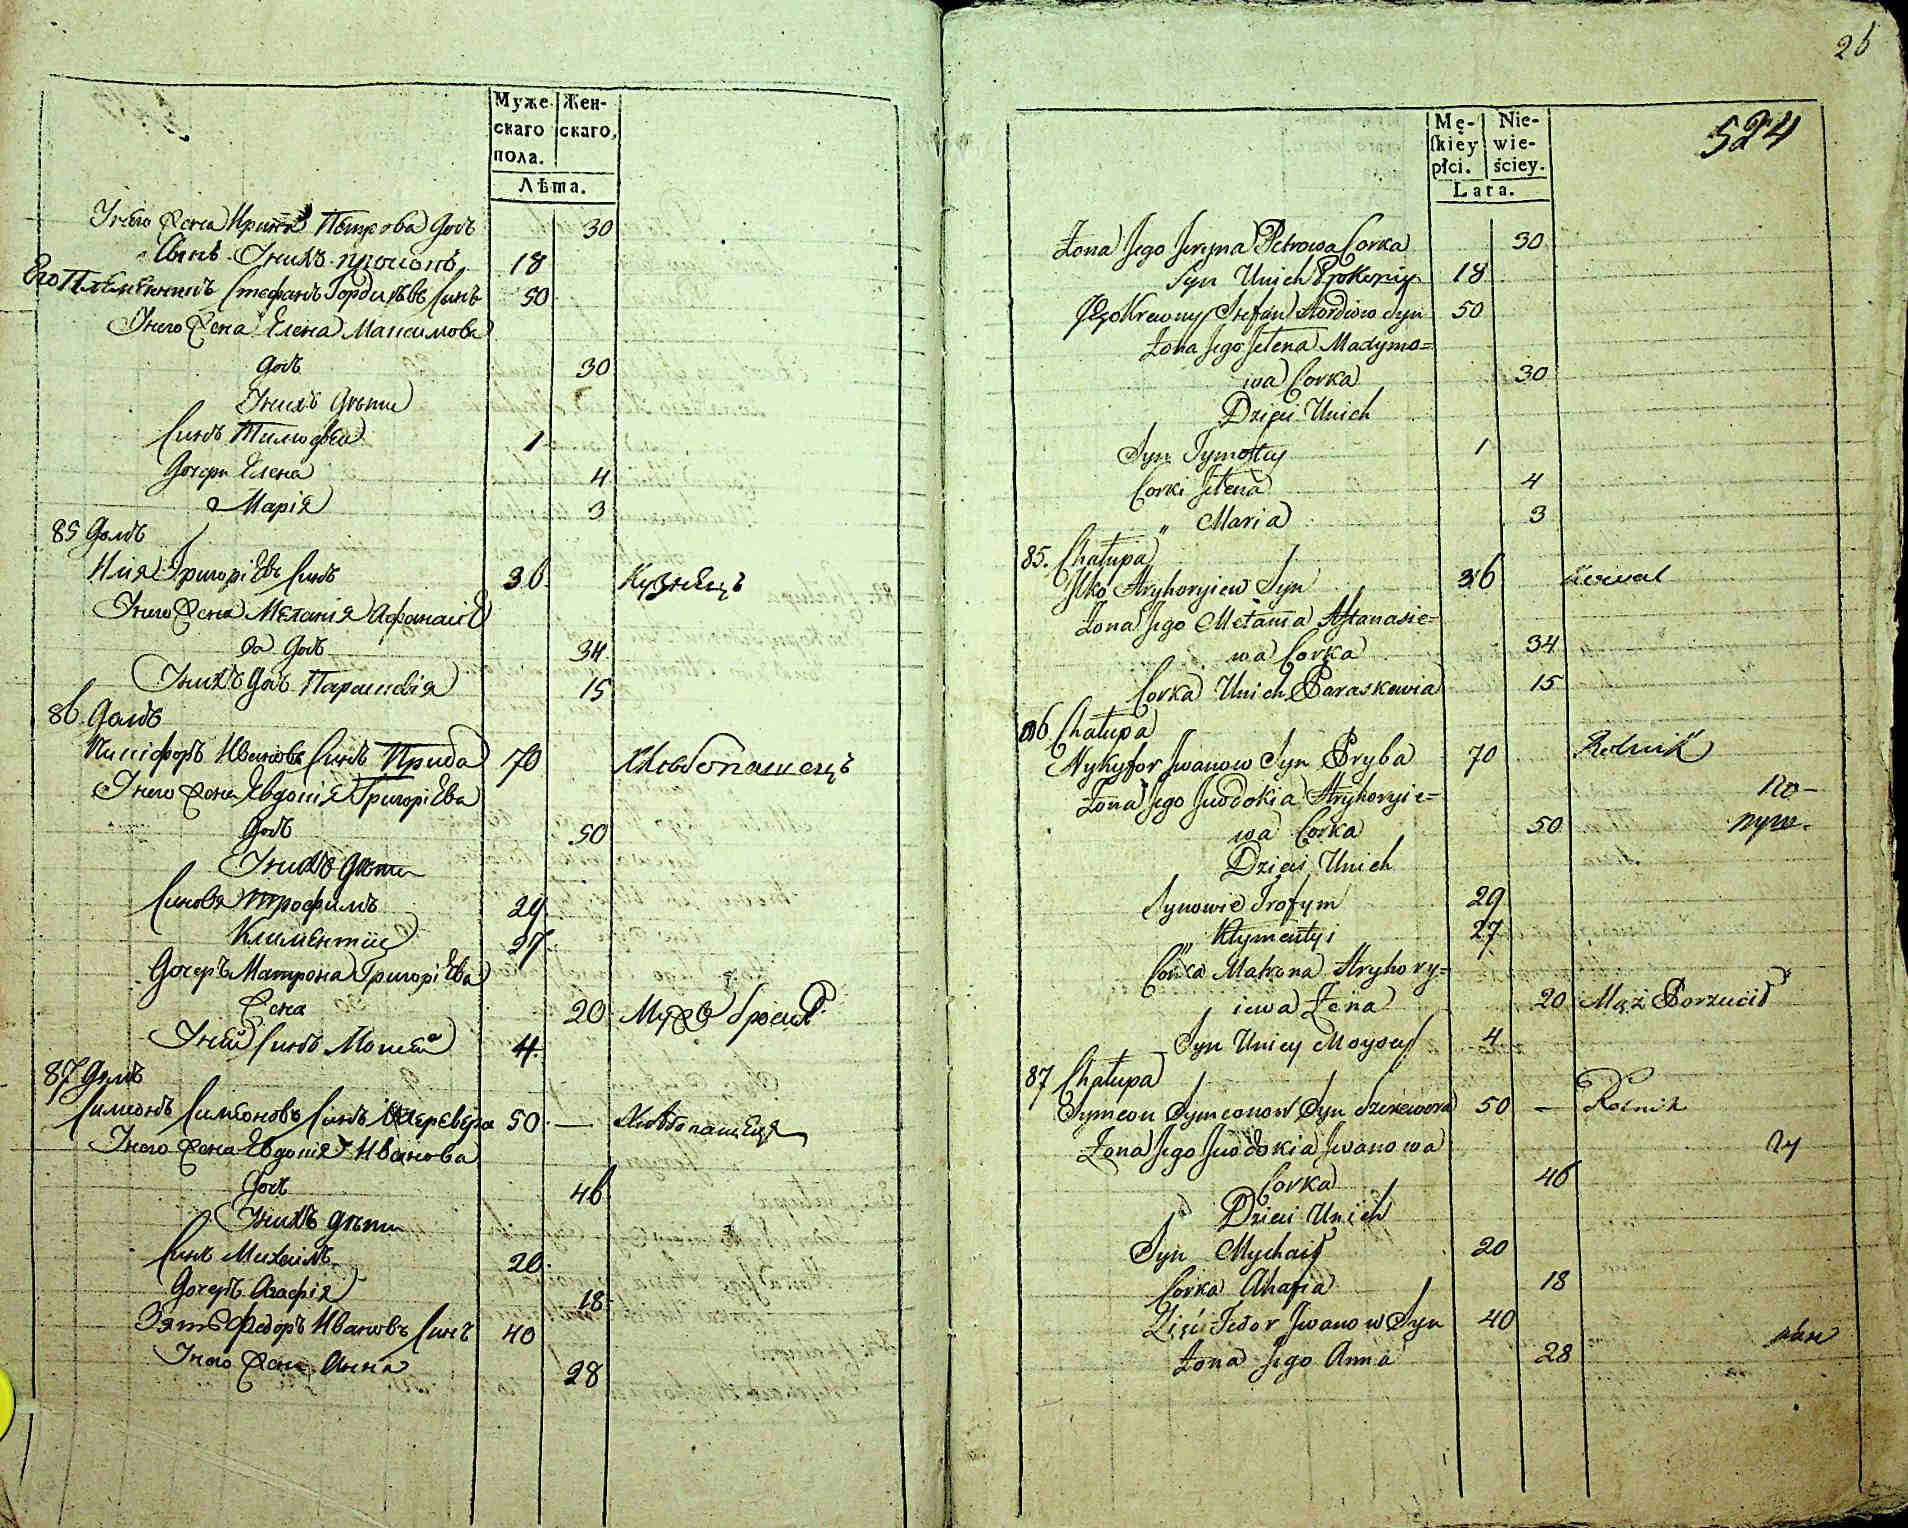 Муже
скаго
пола.
Жен-
скаго,
Лѣта.
Унего Жена Ирина Петрова дочь 30
Сынъ Унихъ 18
Его Племенникъ Стефанъ Гордиевъ Синъ 50
Унего Жена Елена Максимова
дочь 30
Унихъ дѣти
Синъ Тимофей 1
Дочери Елена 4
Марія 3
85 Домъ
Илія Григоріевъ Синъ 36 Кузнецъ
Унего Жена Меланія Афанасіе
ва дочь 34
Унихъ дочь Параскевія 15
86 Домъ
Никифоръ Ивановъ Синъ Приба 70 Хлѣбопашецъ
Унего Жена Евдокія Григоріева
дочь 50
Унихъ дѣти
Синовя Трофимъ 29
Климентій 27
Дочерь Матрона Григоріева
Жена 20 Мужъ бросилъ
Уней Синъ Мойсей 4
87 Домъ
Симеонъ Симеоновъ Синъ 50 — Хлѣбопашецъ
Унего Жена Евдокія Иванова
дочь 46
Унихъ дѣти
Синъ Михаилъ 20
Дочерь Агафія 18
Зять Федоръ Ивановъ Синъ 40
Унего Жена Анна 28
26
524
Mę-
ſkiey
płci.
Nie-
wie-
ściey.
Lata.
Żona Jego Jeryna Petrowa Corka 30
Syn Unich Prokopiy 18
Jego Krewny Stefan Hordiew Syn 50
Żona Jego Jełena Maxymo=
wa Corka 30
Dzieci Unich
Syn Tymoftey 1
Corki Jełena 4
" Maria 3
85. Chałupa
Ilko Hryhoryiew Syn 36 Kowal
Żona Jego Mełania Aftanasie=
wa Corka 34
Corka Unich Paraskewia 15
86 Chałupa
Nykyfor Jwanow Syn Pryba 70 Rolnik
Żona Jego Jwdokia Hryhoryie=
wa Corka 50
Dzieci Unich
Synowie Trofym 29
" Kłymentyi 27
Corka Matrona Hryhory=
iewa Żena 20 Mąż Porzucił
Syn Uniey Moysey 4
87 Chałupa
Symeon Symeonow Syn Szerewera 50 — Rolnik
Żona Jego Jwdokia Jwanowa
Corka 46
Dzieci Unich
Syn Mychaił 20
Corka Ahafia 18
Zięć Fedor Jwanow Syn 40
Żona Jego Anna 28